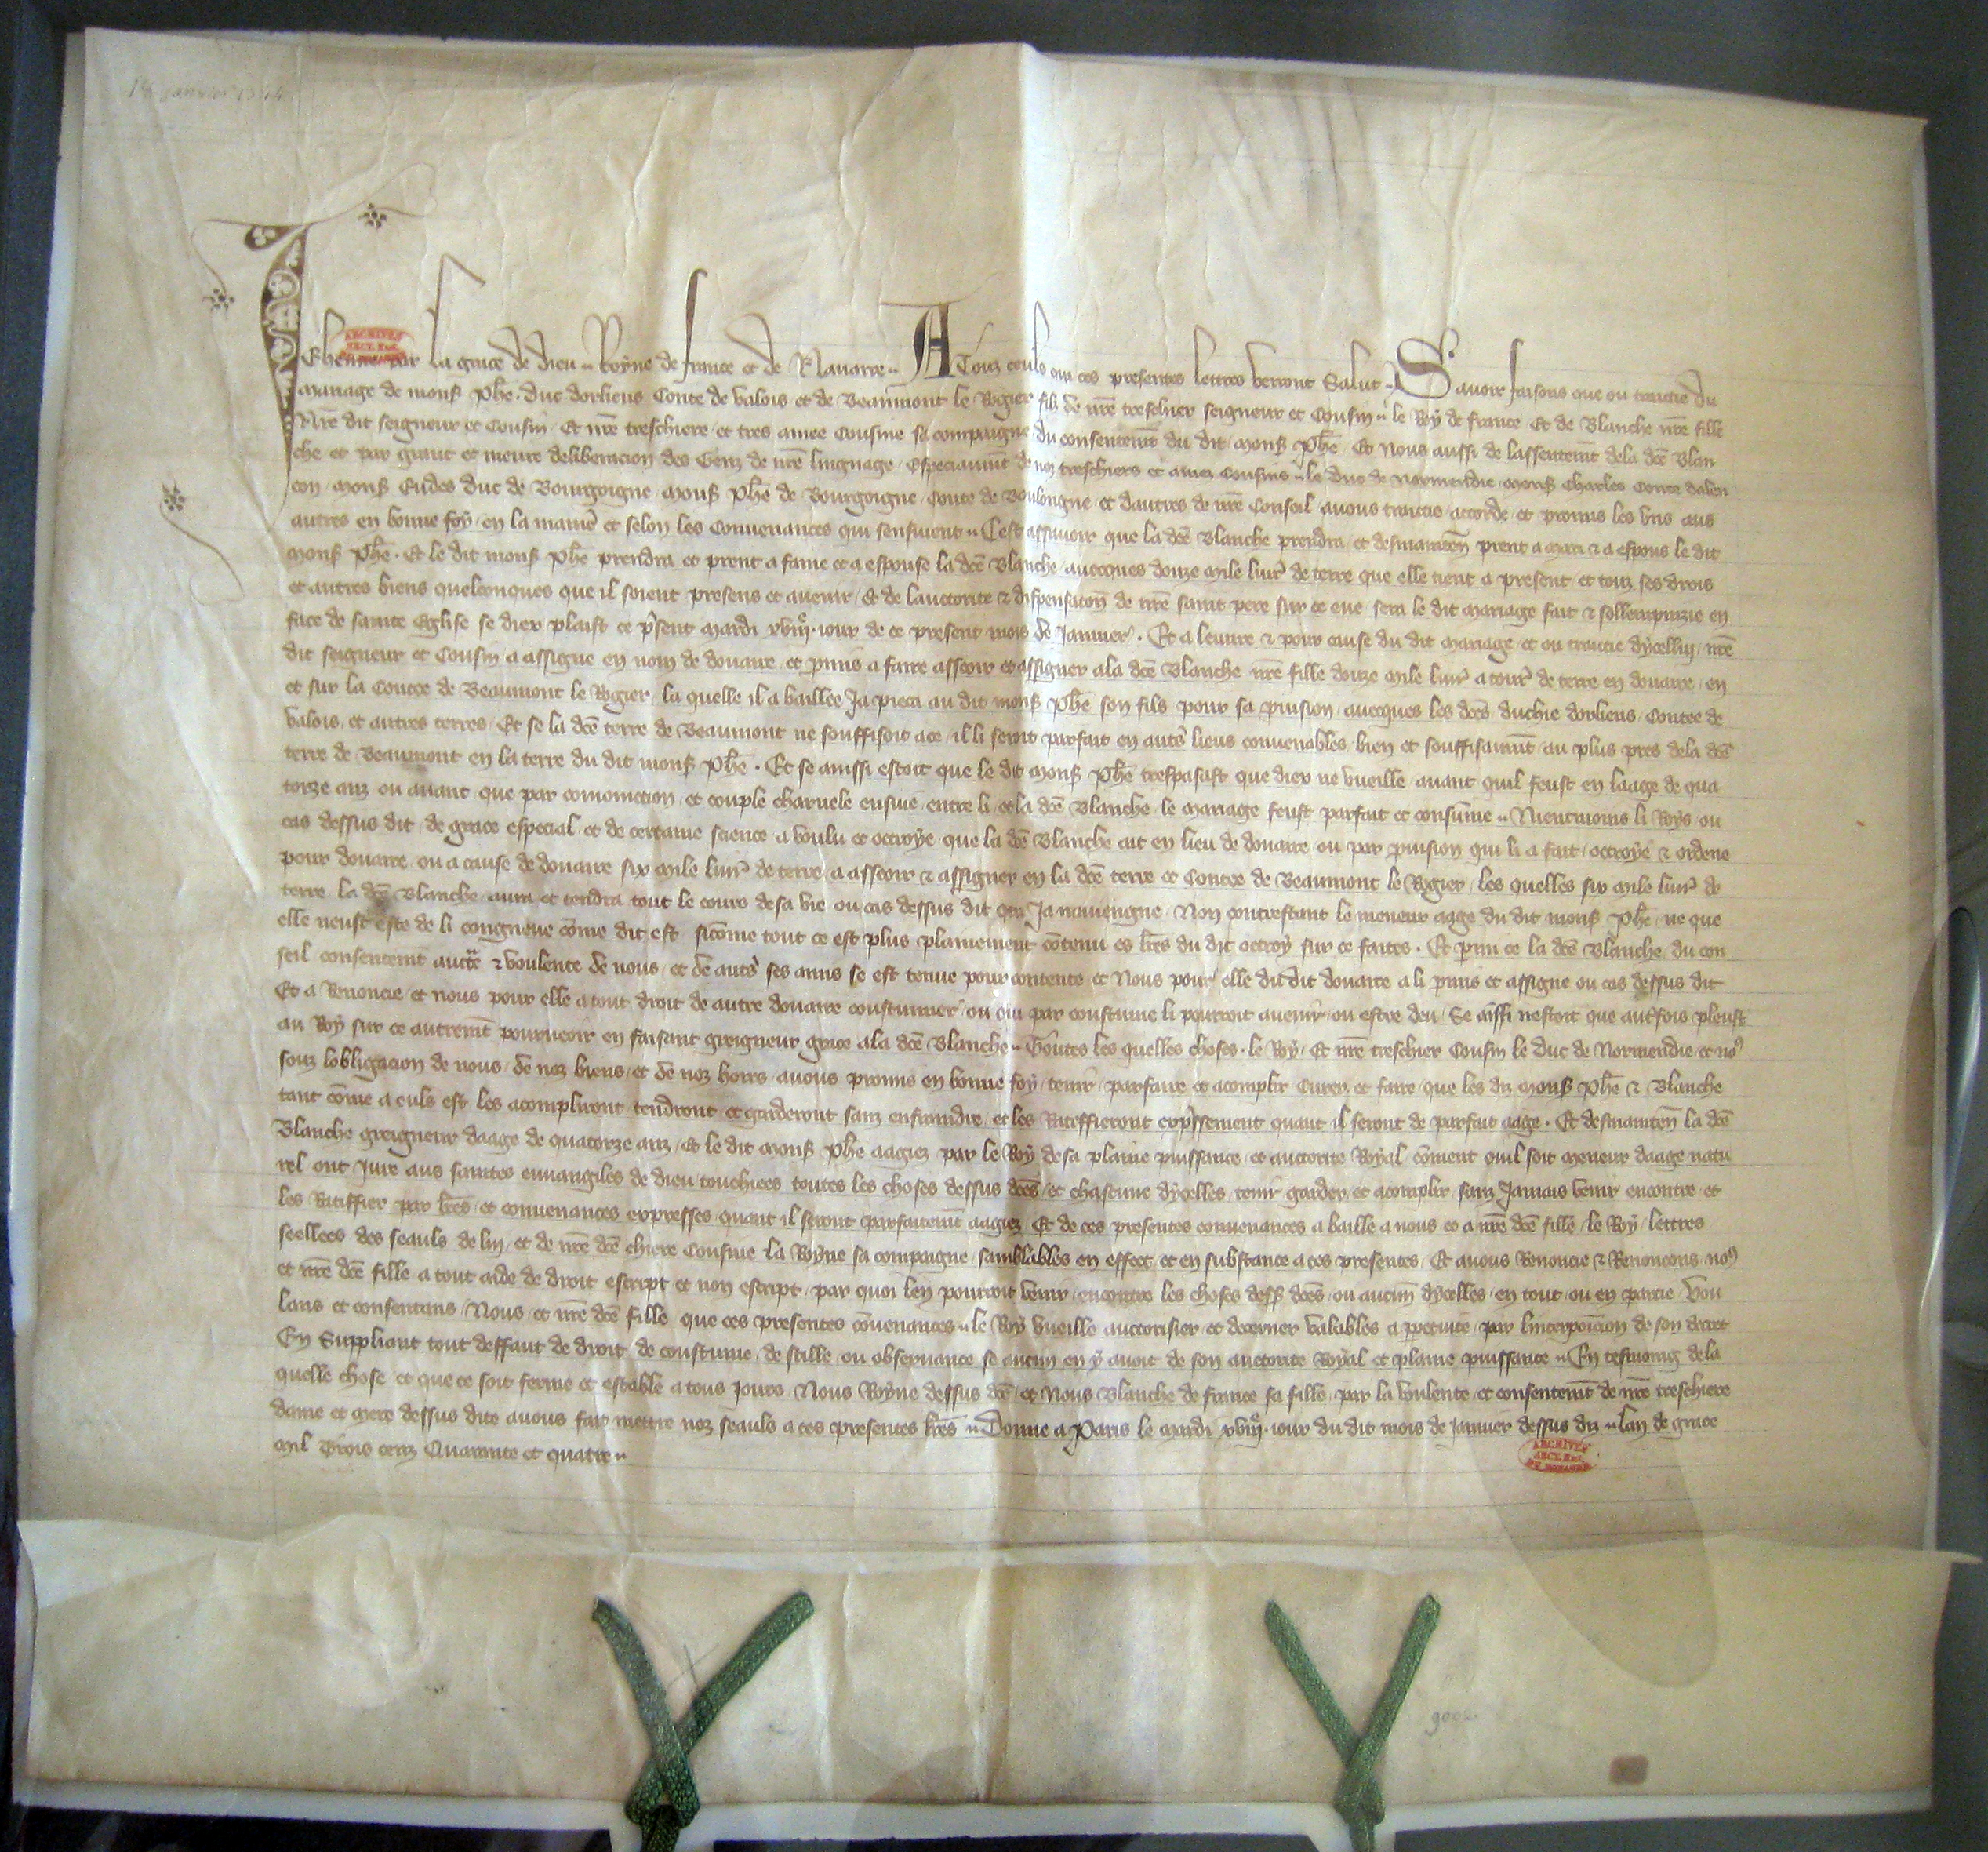 Jehanne par la grace de dieu Royne de france et de Navarre A Touz ceuls qui ces presentes lettres verront Salut Savoir faisons que ou traictie du
mariage de mons Phe duc dorliens Conte de Valois et de Beaumont le Rogier filz de nre treschier seigneur et Cousin le Roy de france Et de Blanche nre fille
Nre dit seigneur et Cousin Et nre treschiere et tres amee Cousine sa compaigne du consentemt du dit mons Phe Et Nous aussi de lassentemt dela dce Blan
che et par grant et meure deliberacion des Genz de nre lingnage Especiaumt de noz treschiers et amez Cousins le duc de Normendie mons Charles Conte dalen
con mons Eudes duc de Bourgoigne mons Phe de Bourgoigne Conte de Bouloigne et dautres de nre Conseil avons traictie accorde et promis les uns aus
autres en bonne foy en la manie et selon les Convenances qui sensuivent Cest assavoir que la dce Blanche prendra et desmainten prent a mari & a espous le dit
mons Phe Et le dit mons Phe prendra et prent a fame et a espouse la dce Blanche avecques douze mile livr de terre que elle tient a present et touz ses drois
et autres biens quelconques que il soient presens et avenir Et de lauctorite & dispensation de nre saint pere sur ce eue sera le dit mariage fait & sollempnizie en
face de sainte Eglise se diex plaist ce psent mardi xviije jour de ce present mois de Janvier Et a leuvre & pour cause du dit mariage et ou traictie dycelluy nre
dit seigneur et Cousin a assigne en nom de douaire et pmis a faire asseoir et assigner ala dce Blanche nre fille douze mile livr a tour de terre en douaire en
et sur la Contee de Beaumont le Rogier la quelle il a baillee Ja pieca au dit mons Phe son fils pour sa pvision avecques les dces duchie dorliens Contee de
Valois et autres terres Et se la dce terre de Beaumont ne souffisoit ace il li seroit parfait en autes lieus convenables bien et souffisaumt au plus pres dela dce
terre de Beaumont en la terre du dit mons Phe Et se ainssi estoit que le dit mons Phe trespasast que diex ne vueille avant quil feust en laage de qua
torze anz ou avant que par comonicion et couple charnele ensuie entre li et la dce Blanche le mariage feust parfait et consume Nientmoins li Roys ou
cas dessus dit de grace especial et de certaine science a voulu et octroye que la dce Blanche ait en lieu de douaire ou par pvision qui li a fait octroye & ordene
pour douaire ou a cause de douaire six mile livr de terre a asseoir & assigner en la dce terre et Contee de Beaumont le Rogier les quelles six mile livr de
terre la dce Blanche aura et tendra tout le cours desa vie ou cas dessus dit que Ja naviengne Non contrestant le meneur aage du dit mons Phe ne que
elle neust este de li congneue come dit est sicome tout ce est plus plainement contenu es lres du dit octroy sur ce faites Et pmi ce la dce Blanche du con
seil consentemt aucte & voulente de nous et de autes ses amis se est tenue pour contente et Nous pour elle du dit douaire a li pmis et assigne ou cas dessus dit
Et a Renoncie et nous pour elle a tout droit de autre douaire coustumier ou qui par coustume li pourroit avenir ou estre deu Se ainsi nestoit que autrefois pleust
au Roy sur ce autremt pourveoir en faisant greigneur grace ala dce Blanche Toutes les quelles choses le Roy Et nre treschier Cousin le duc de Normendie et nos
souz lobligacion de nous de noz biens et de noz hoirs avons promis en bonne foy tenir parfaire et acomplir Curer et faire que les diz mons Phe & Blanche
tant come a euls est les acompliront tendront et garderont sanz enfraindre et les Ratiffieront expssement quant il seront de parfait aage Et desmainten la dce
Blanche greigneur daage de quatorze anz Et le dit mons Phe aagiez par le Roy desa plaine puissance et auctorite Royal coment quil soit meneur daage natu
rel ont Jure aus saintes euvangiles de dieu touchiees toutes les choses dessus dces et chascune dycelles tenir garder et acomplir sanz Jamais venir encontre et
les Ratiffier par lres et convenances expresses quant il seront parfaitemt aagiez Et de ces presentes convenances a baille a nous et a nre dce fille le Roy lettres
seellees des seauls de luy et de nre dce chiere Cousine la Royne sa compaigne samblables en effect et en substance a ces presentes Et avons Renoncie & Renoncons nos
et nre dce fille a tout aide de droit escript et non escript par quoi len pourroit venir encontre les choses dess dces ou aucun dycelles en tout ou en partie Vou
lans et consentans Nous et nre dce fille que ces presentes convenances le Roy vueille auctorisier et decerner valables a ppetuite par linterposicion de son decret
En Suppliant tout deffaut de droit de coustume de stille ou observance se aucun en y avoit de son auctorite Royal et plaine puissance En tesmoing dela
quelle chose et que ce soit ferme et estable a tous Jours Nous Royne dessus dce et Nous Blanche de france sa fille par la voulente et consentemt de nre treschiere
dame et mere dessus dite avons fait mettre noz seauls a ces presentes lres Donne a Paris le mardi xviije jour du dit mois de Janvier dessus diz lan de grace
mil Trois cenz Quarante et quatre
ARCHIVES
ARCHIVES